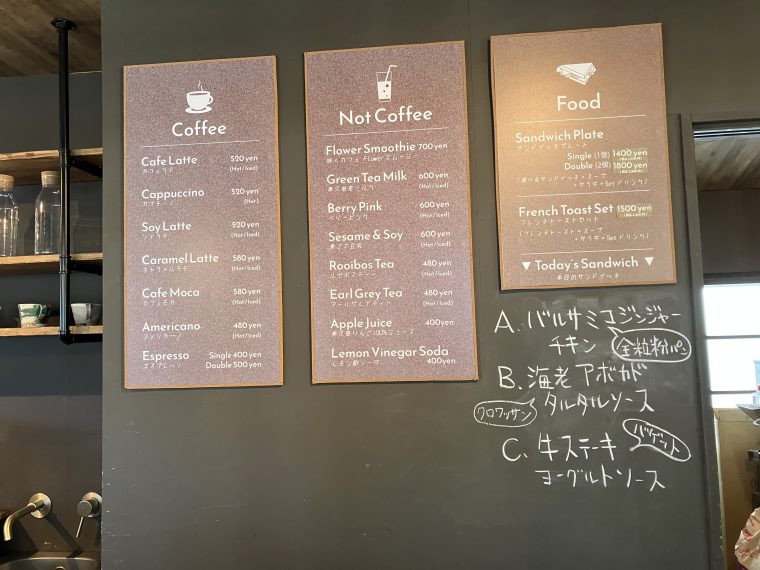 Coffee
Cafe Latte 520 yen
カフェラテ (Hot/Iced)
Cappuccino 520 yen
カプチーノ (Hot)
Soy Latte 520 yen
ソイラテ (Hot/Iced)
Caramel Latte 580 yen
キャラメルラテ (Hot/Iced)
Cafe Moca 580 yen
カフェモカ (Hot/Iced)
Americano 480 yen
アメリカーノ (Hot/Iced)
Espresso Single 400 yen
エスプレッソ Double 500 yen
Not Coffee
Flower Smoothie 700 yen
Green Tea Milk 600 yen
(Hot/Iced)
Berry Pink 600 yen
ベリーピンク (Hot/Iced)
Sesame & Soy 600 yen
(Hot/Iced)
Rooibos Tea 480 yen
ルイボスティー (Hot/Iced)
Earl Grey Tea 480 yen
アールグレイティー (Hot/Iced)
Apple Juice 400 yen
Lemon Vinegar Soda
レモン酢ソーダ 400 yen
Food
Sandwich Plate
サンドイッチプレート
Single (1個) 1400 yen
Double (2個) 1800 yen
(選べるサンドイッチ+スープ
+サラダ+Setドリンク)
French Toast Set 1500 yen
フレンチトーストセット
(フレンチトースト+スープ
+サラダ+Setドリンク)
▼ Today's Sandwich ▼
本日のサンドイッチ
A. バルサミコジンジャー
チキン 全粒粉パン
B. 海老アボカド
クロワッサン タルタルソース
C. 牛ステーキ バゲット
ヨーグルトソース